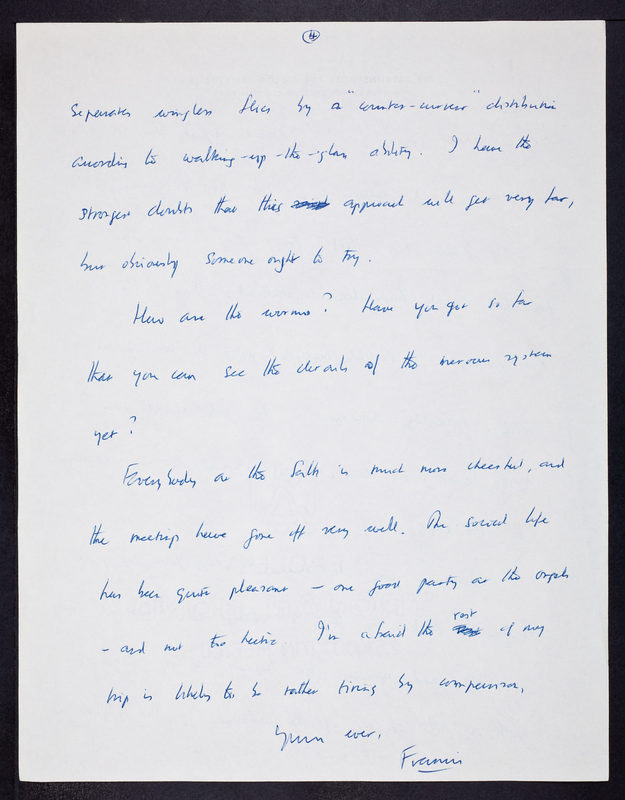 4
separates wingless flies by a "counter-current" distribution
according to walking-up-the-glass ability. I have the
strongest doubts that this approach will get very far,
but obviously someone ought to try.
How are the worms? Have you got so far
that you can see the details of the nervous system
yet?
Everybody at the Salk is much more cheerful, and
the meetings have gone off very well. The social life
has been quite pleasant — one good party at the
— and not too hectic. I'm afraid the rest of my
trip is likely to be rather tiring by comparison.
Yours ever,
Francis